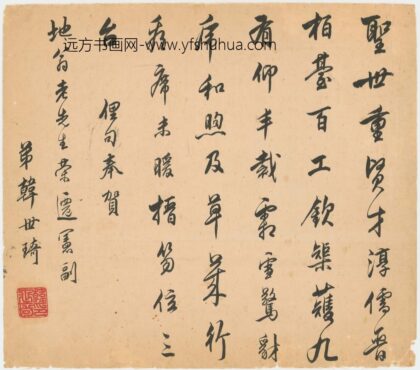 聖世重賢才淳儒晋
柏臺百工欽榘蒦九
有仰丰裁霜雪驚豺
虎和煦及草萊行
看席未暖搢笏位三
台 俚句奉賀
地翁老先生榮遷憲副
弟韓世琦
远方书画网-www.yfshuhua.com